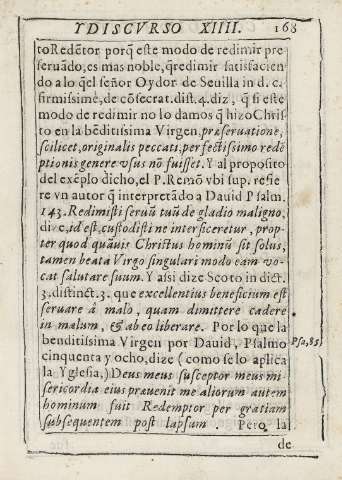 Y DISCVRSO XIIII. 168
to Redẽtor porq̃ este modo de redimir pre
seruãdo, es mas noble, q̃ redimir satisfacien
do a lo q̃ el señor Oydor de Seuilla in d. c.
firmissimè, de cõsecrat. dist. 4. diz, q̃ si este
modo de redimir no lo damos q̃ hizo Chris
to en la bẽditissima Virgen, præseruatione,
scilicet, originalis peccati, perfectissimo redẽ
ptionis genere vsus nõ fuisset. Y al proposito
del exẽplo dicho, el P. Remõ vbi sup. refie
re vn autor q̃ interpretãdo a Dauid Psalm.
143. Redimisti seruũ tuũ de gladio maligno,
dize, id est, custodisti ne interficeretur, prop-
ter quod quãuis Christus hominũ sit solus,
tamen beata Virgo singulari modo eam vo-
cat salutare suum. Y assi dize Scoto in dict.
3. distinct. 3. que excellentius beneficium est
seruare à malo, quam dimittere cadere
in malum, & ab eo liberare. Por lo que la
benditissima Virgen por Dauid, Psalmo Psa, 85
cinquenta y ocho, dize ( como se lo aplica
la Yglesia,) Deus meus susceptor meus mi-
sericordia eius præuenit me aliorum autem
hominum fuit Redemptor per gratiam
subsequentem post lapsum. Pero la
de